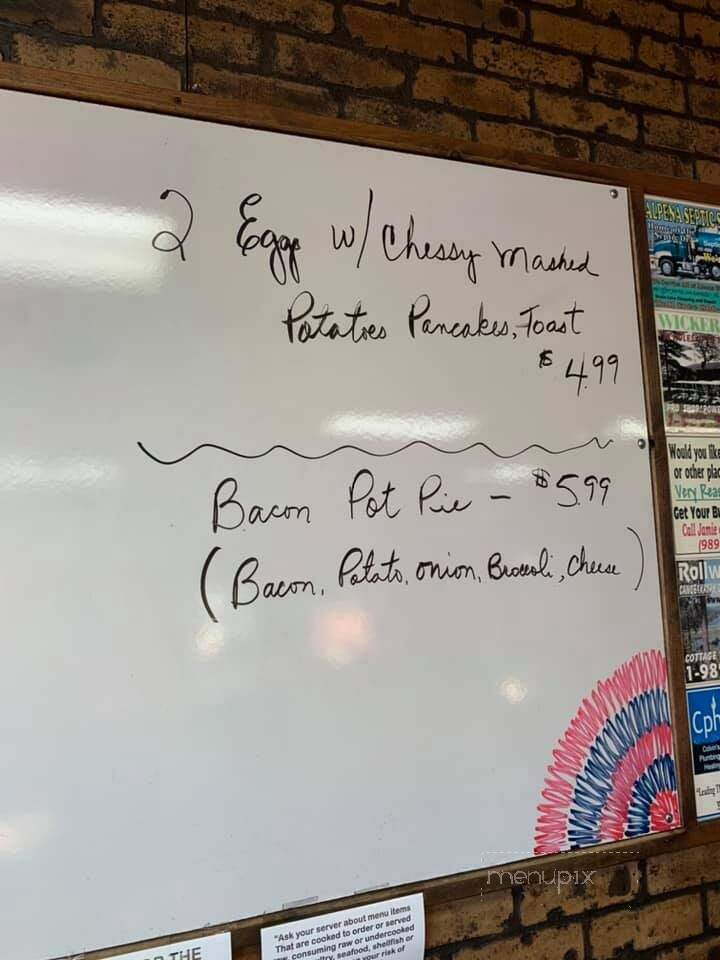 2 Eggs w/ Chessy Mashed
Potatoes Pancakes, Toast
$4.99
Bacon Pot Pie - $5.99
(Bacon, Potato, onion, Broccoli, Cheese)
ALPENA SEPTIC
WICKER
Would you like
or other plac
Very Reas
Get Your Bu
Call Jamie
(989
Rollw
COTTAGE
1-98
Cph
Plumbing
Heating
"Leading
menupix
THE
"Ask your server about menu items
That are cooked to order or served
consuming raw or undercooked
seafood, shellfish or
your risk of